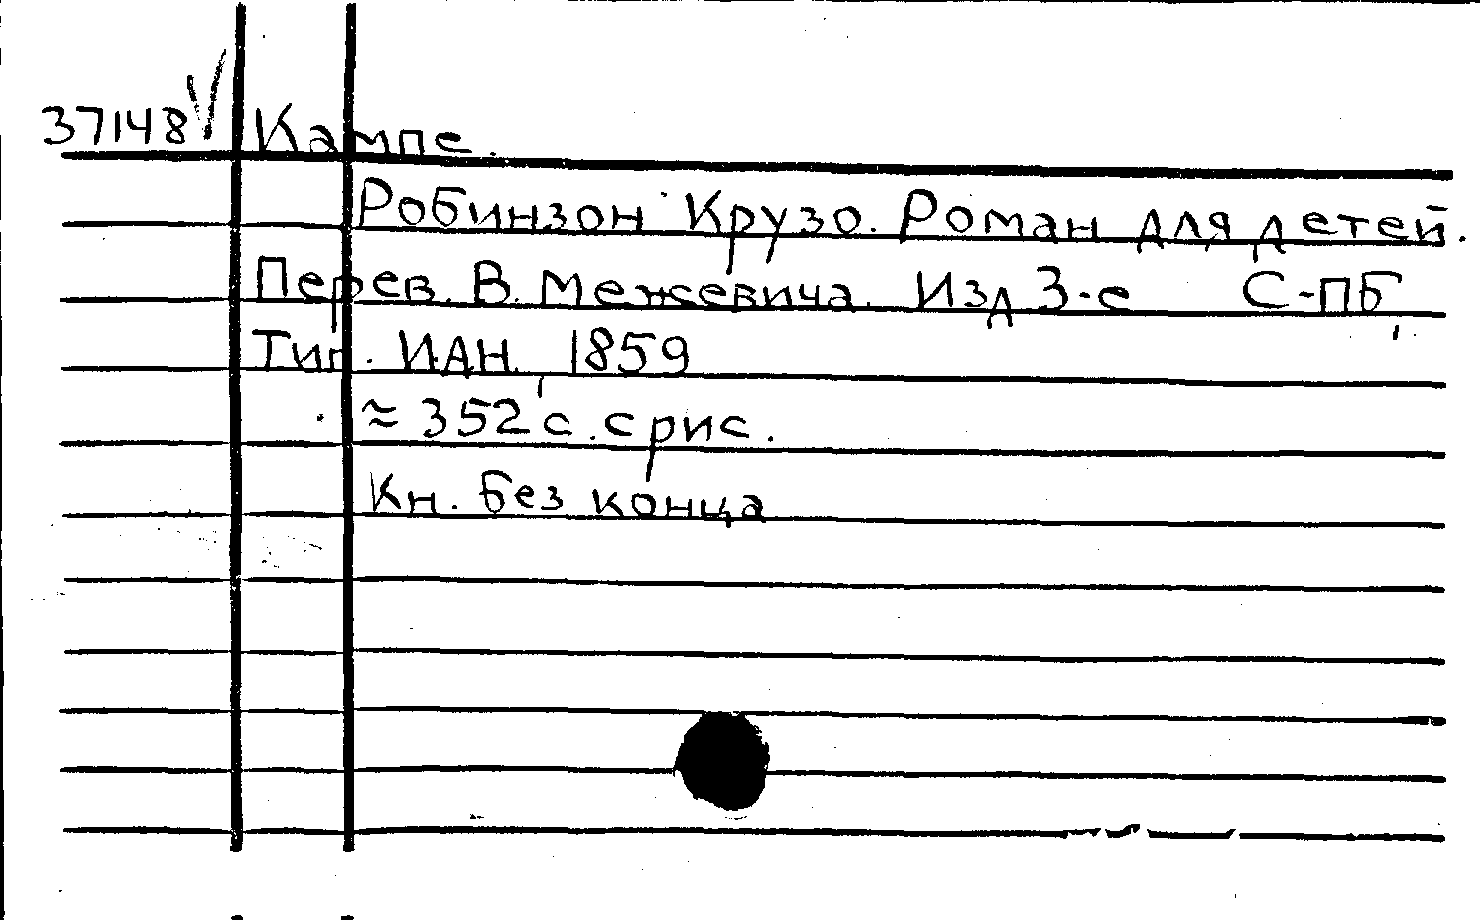 37148 √ Кампе.
Робинзон Крузо. Роман для детей.
Перев. В. Межевича. Изд 3-е С-ПБ,
Тип. ИАН, 1859
≈ 352 с. с рис.
Кн. без конца